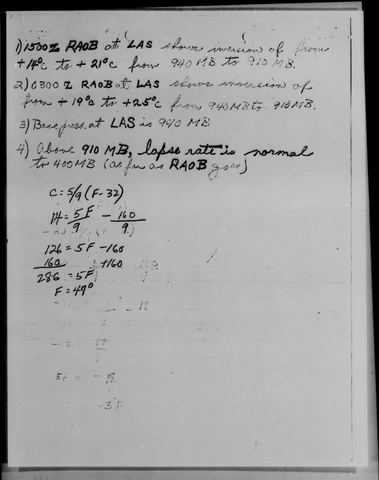 1) 1500Z RAOB at LAS shows inversion of from
+14°C to +21°C from 940 MB to 910 MB.
2) 0300Z RAOB at LAS shows inversion of
from +19°C to +25°C from 940MB to 910MB.
3) Base press. at LAS is 940 MB
4) Above 910 MB, lapse rate is normal
to 400MB (as far as RAOB goes)
C = 5/9 (F-32)
14 = 5F/9 - 160/9
126 = 5F - 160
160 +160
286 = 5F
F = 49°